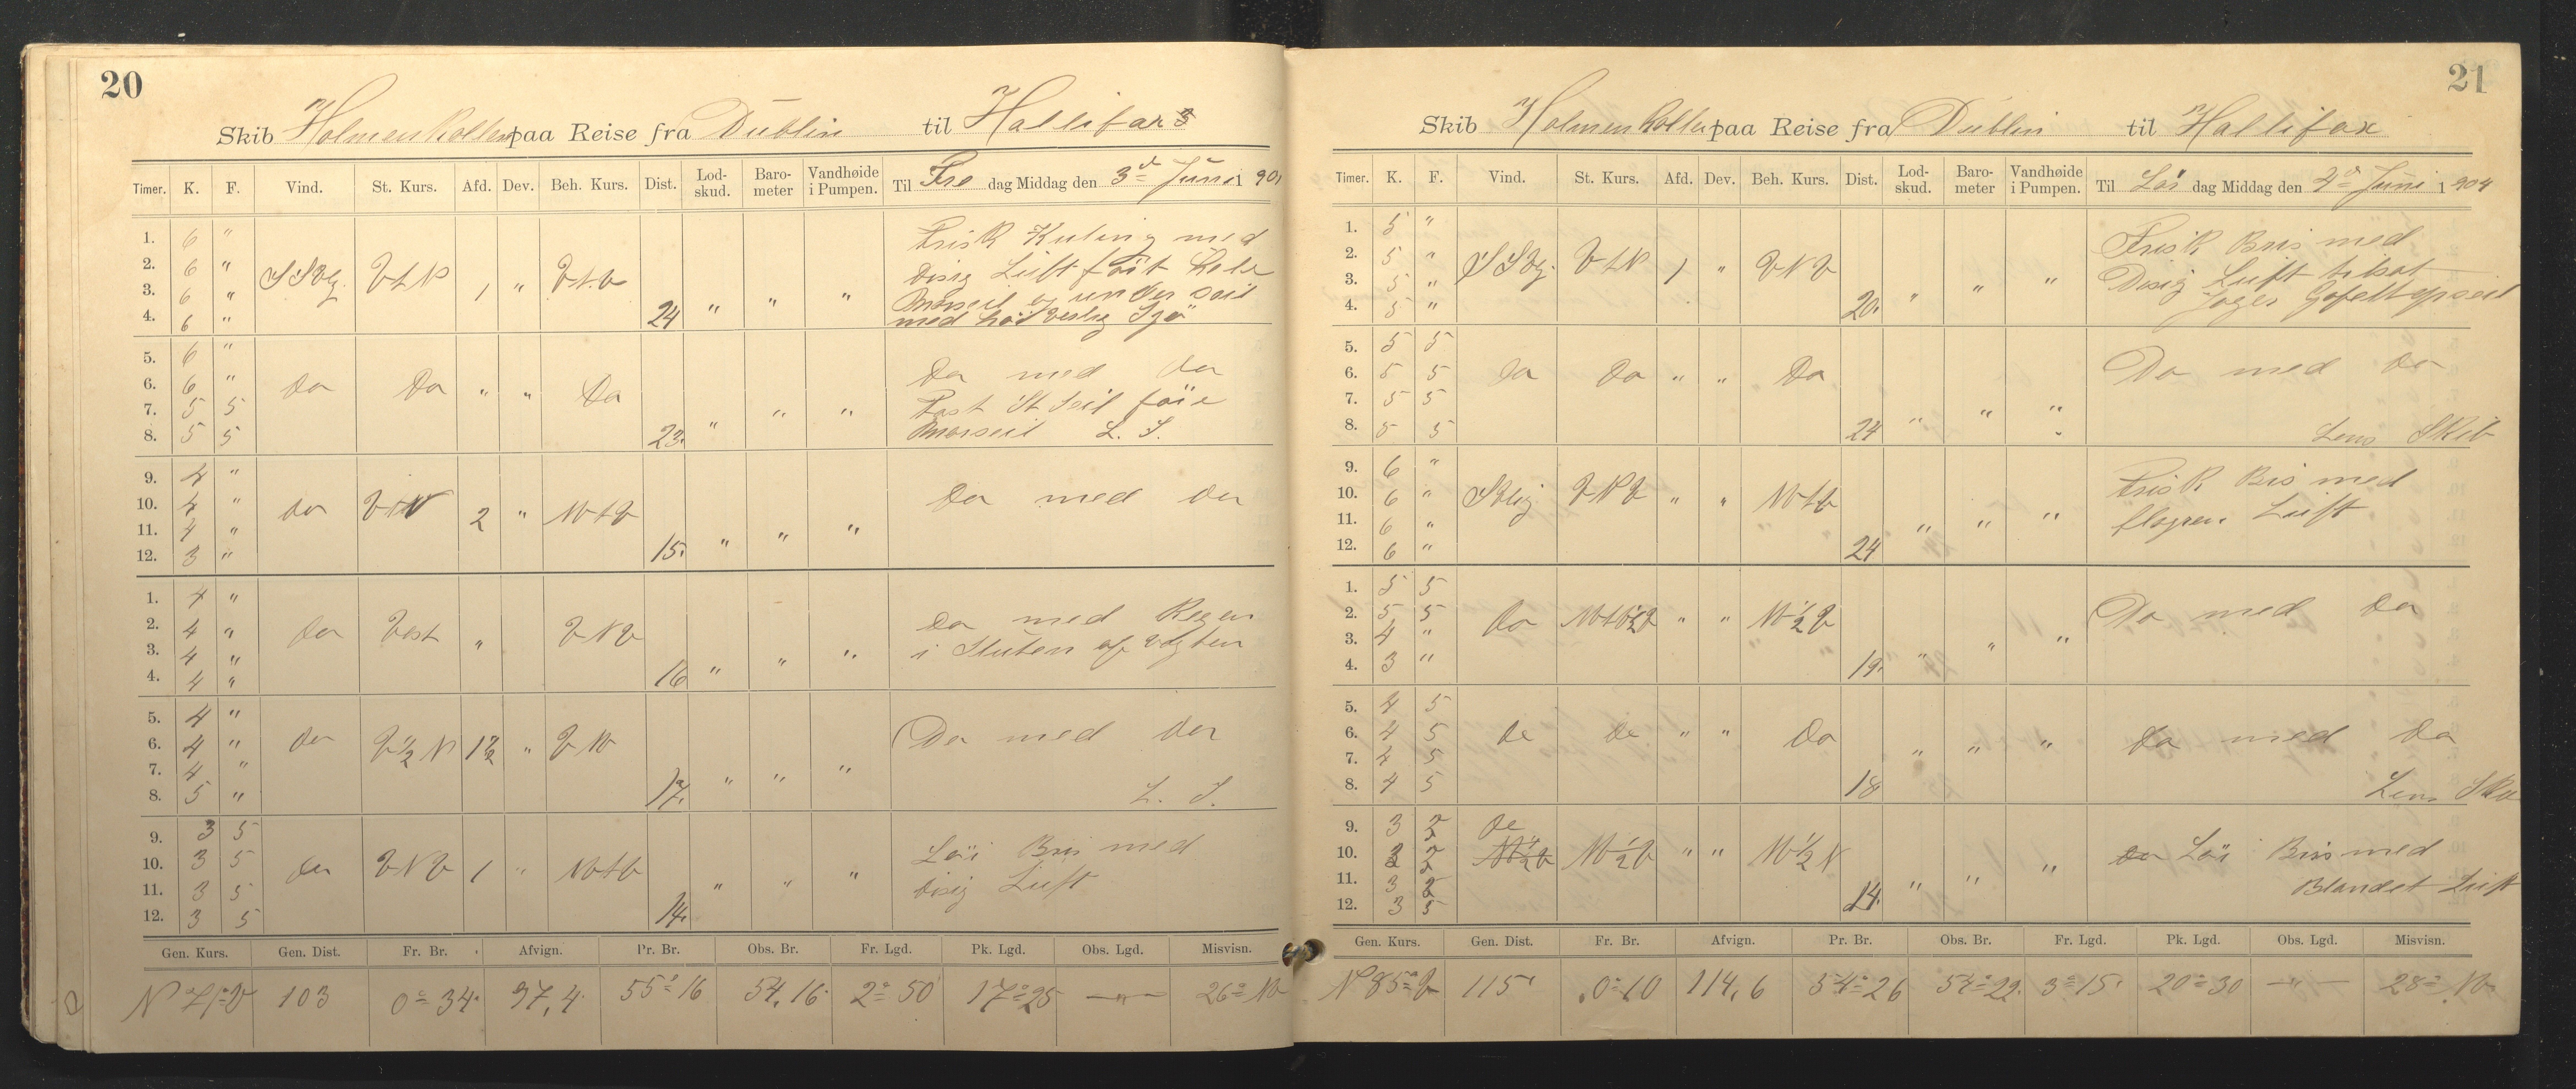 20
Skib Holmenkollen paa Reise fra Dublin til Hallifax
Timer. K. F. Vind. St. Kurs. Afd. Dev. Beh. Kurs. Dist. Lod-skud. Baro-meter Vandhøide i Pumpen. Til Fre dag Middag den 3d Juni 1 90
1. 6 " Frisk Kuling med
2. 6 " SSVlg. VtN 1 " VtN Disig Luft föit hele
3. 6 " " " " Mærseil og under seil
4. 6 " 24 med høi vestlig Sjø
5. 6 "
6. 6 " Do Do " " Do Do med Do
7. 5 5 " " " Fast St Seil föie
8. 5 5 23. Mærseil L. S.
9. 4 "
10. 4 " Do VtN 2 " NVtV Do med Do
11. 4 " " " "
12. 3 " 15.
1. 4 "
2. 4 " Do Vest " VNV Do med Regen
3. 4 " " " " i Sluten af Vagten
4. 4 " 16
5. 4 "
6. 4 " Do V½N 1½ " VNV Do med Do
7. 4 " " " "
8. 5 " 17. L. S.
9. 3 5
10. 3 5 Do VNV 1 " NVtV Löi Bris med
11. 3 5 " " " Disig Luft
12. 3 5 14.
Gen. Kurs. Gen. Dist. Fr. Br. Afvign. Pr. Br. Obs. Br. Fr. Lgd. Pk. Lgd. Obs. Lgd. Misvisn.
N 71° V 103 0° 34' 97,4 55° 16 54,16 2° 50' 17° 25 —"— 26° NV
21
Skib Holmenkollen paa Reise fra Dublin til Hallifax
Timer. K. F. Vind. St. Kurs. Afd. Dev. Beh. Kurs. Dist. Lod-skud. Baro-meter Vandhøide i Pumpen. Til Lör dag Middag den 4d Juni 1 904
1. 5 " Frisk Bris med
2. 5 " SSVlg. VtN 1 " VNV Disig Luft tilsat
3. 5 " " " " Jager Gafeltopseil
4. 5 " 20.
5. 5 5
6. 5 5 Do Do " " Do Do med Do
7. 5 5 " " "
8. 5 5 24 Lens Skib
9. 6 "
10. 6 " SVlig VNV " " NVtV Frisk Bris med
11. 6 " " " "
12. 6 " 24
1. 5 5
2. 5 5 Do NVtV½V " " NV½V Do med Do
3. 4 " " " "
4. 3 " 19.
5. 4 5
6. 4 5 Do Do " " Do Do med Do
7. 4 5 " " "
8. 4 5 18 Lens
9. 3 2 Do
10. 3 2 NV½V " " NV½N Löi Bris med
11. 3 2 " " " Blandet Luft
12. 3 5 14.
Gen. Kurs. Gen. Dist. Fr. Br. Afvign. Pr. Br. Obs. Br. Fr. Lgd. Pk. Lgd. Obs. Lgd. Misvisn.
N 85° V 115' 0° 10 114,6 54° 26 54° 22. 3° 15' 20° 30 —"— 28° NV